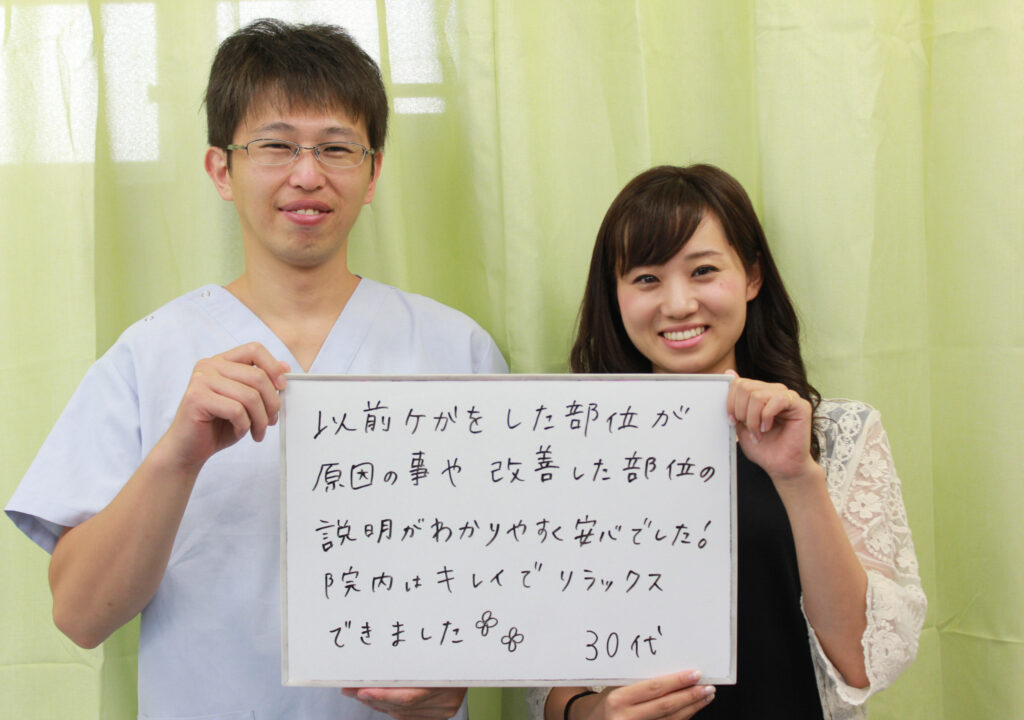 以前ケガをした部位が
原因の事や 改善した部位の
説明がわかりやすく安心でした!
院内はキレイでリラックス
できました 30代